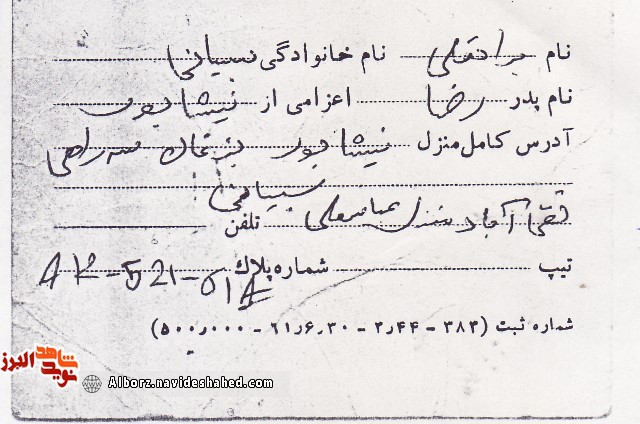 نام براتعلی نام خانوادگی بیانی
نام پدر رضا اعزامی از نیشابور
آدرس کامل منزل نیشابور بزغان سه راهی
تقی آباد منزل عباسعلی بیانی تلفن
تیپ شماره پلاك AK-521-51A
شماره ثبت (۳۸۳ - ۳٫۴۴ - ۶۱٫۶٫۳۰ - ۵۰۰٫۰۰۰)
شاهد
نوید
البرز
Alborz.navideshahed.com